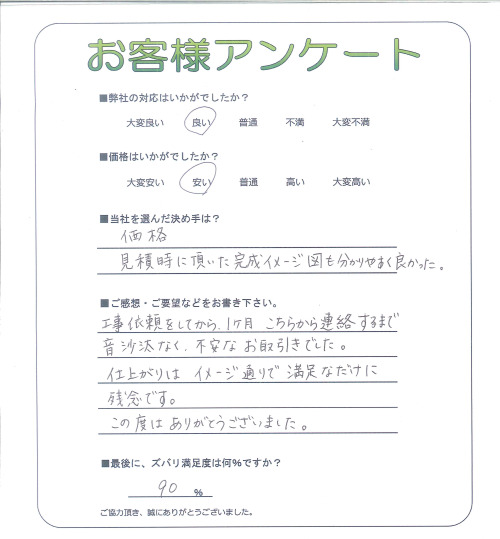 お客様アンケート
■弊社の対応はいかがでしたか？
大変良い 良い 普通 不満 大変不満
■価格はいかがでしたか？
大変安い 安い 普通 高い 大変高い
■当社を選んだ決め手は？
価格
見積時に頂いた完成イメージ図も分かりやすく良かった。
■ご感想・ご要望などをお書き下さい。
工事依頼をしてから、1ヶ月 こちらから連絡するまで
音沙汰なく、不安な お取引きでした。
仕上がりは イメージ通りで 満足なだけに
残念です。
この度は ありがとうございました。
■最後に、ズバリ満足度は何%ですか？
90 %
ご協力頂き、誠にありがとうございました。